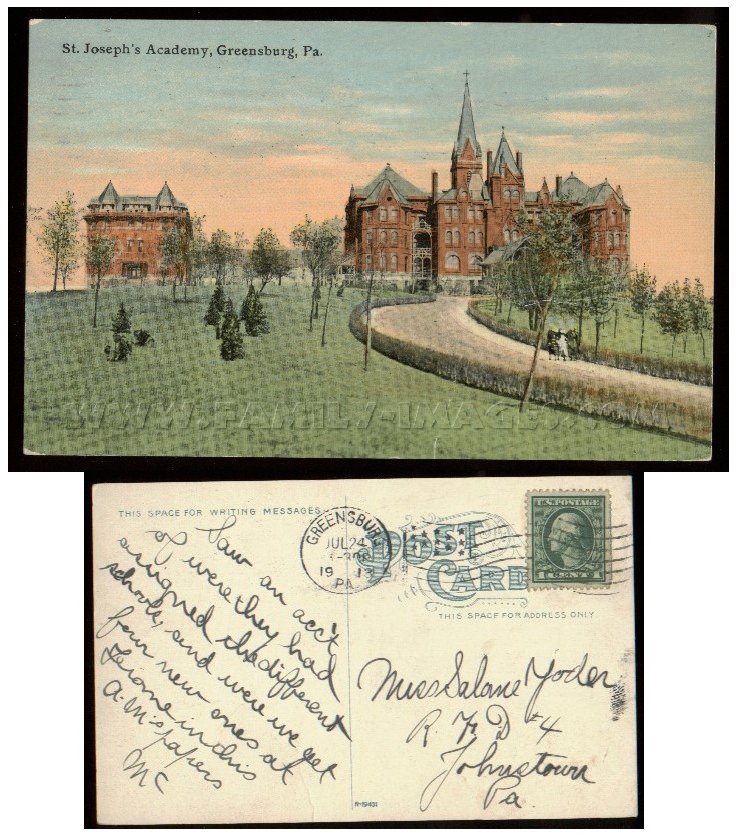 St. Joseph's Academy, Greensburg, Pa.
WWW.FAMILY-IMAGES.COM
THIS SPACE FOR WRITING MESSAGES
Saw an acc't
of were they had
assigned the different
schools, and were we get
four new ones at
Jerome in this
A.M's papers
Mc
GREENSBURG
JUL 24
1913
PA.
POST
CARD
U.S. POSTAGE
1 CENT 1
THIS SPACE FOR ADDRESS ONLY
Miss Salane Yoder
R. F. D #4
Johnstown
Pa.
R-19401